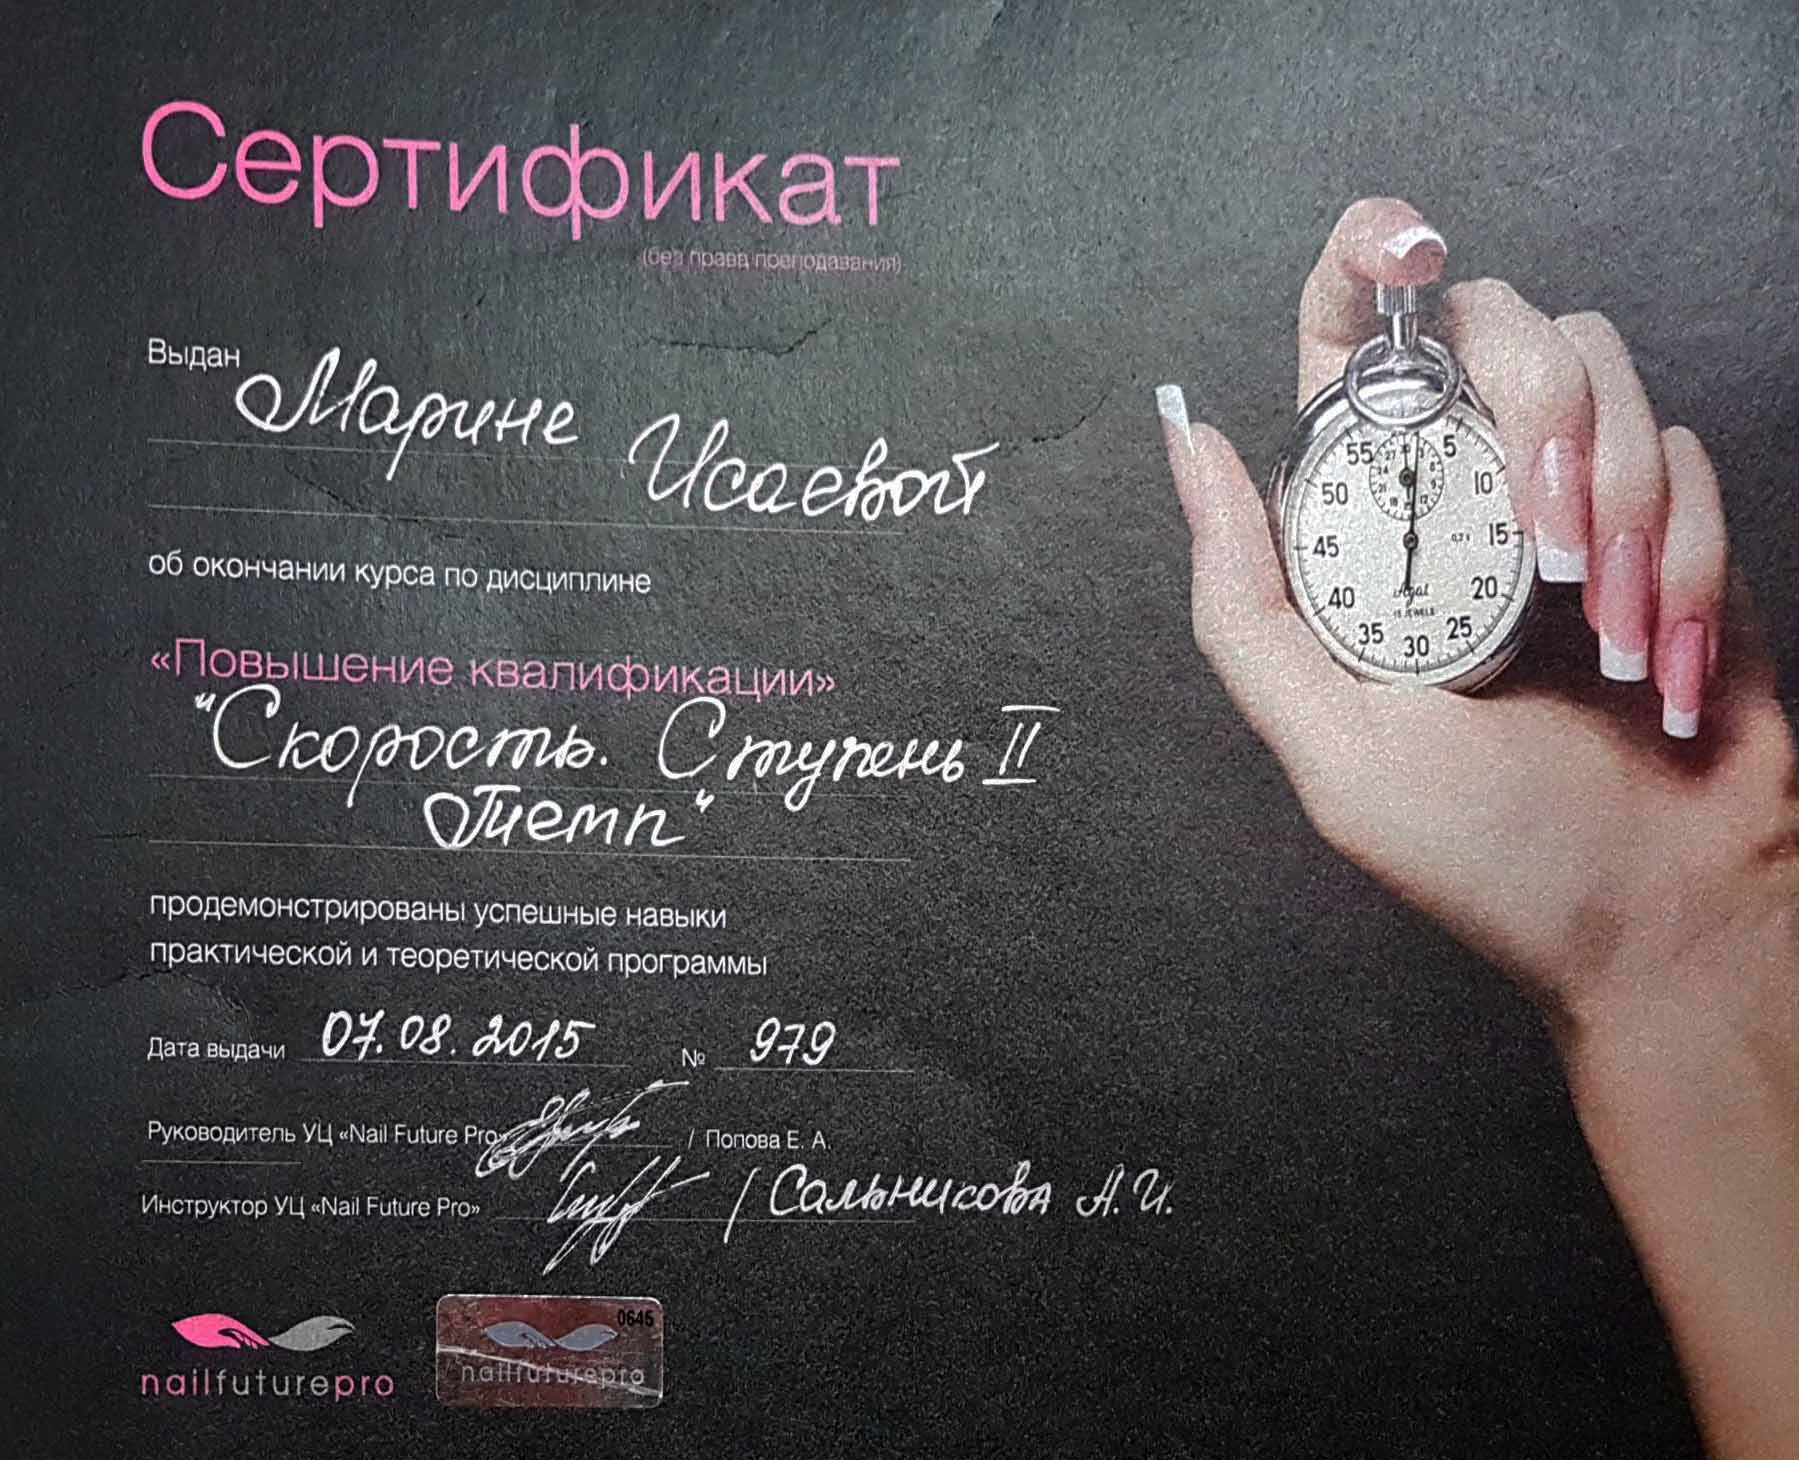 Сертификат
(без права преподавания)
Выдан Марине
Исаевой
об окончании курса по дисциплине
«Повышение квалификации»
"Скорость. Ступень II
Темп"
продемонстрированы успешные навыки
практической и теоретической программы
Дата выдачи 07.08.2015 № 979
Руководитель УЦ «Nail Future Pro» / Попова Е. А.
Инструктор УЦ «Nail Future Pro» / Сальникова А.И.
nailfuturepro
0645
nailfuturepro
55 5
50 10
45 15
40 20
35 25
30
Agat
15 JEWELS